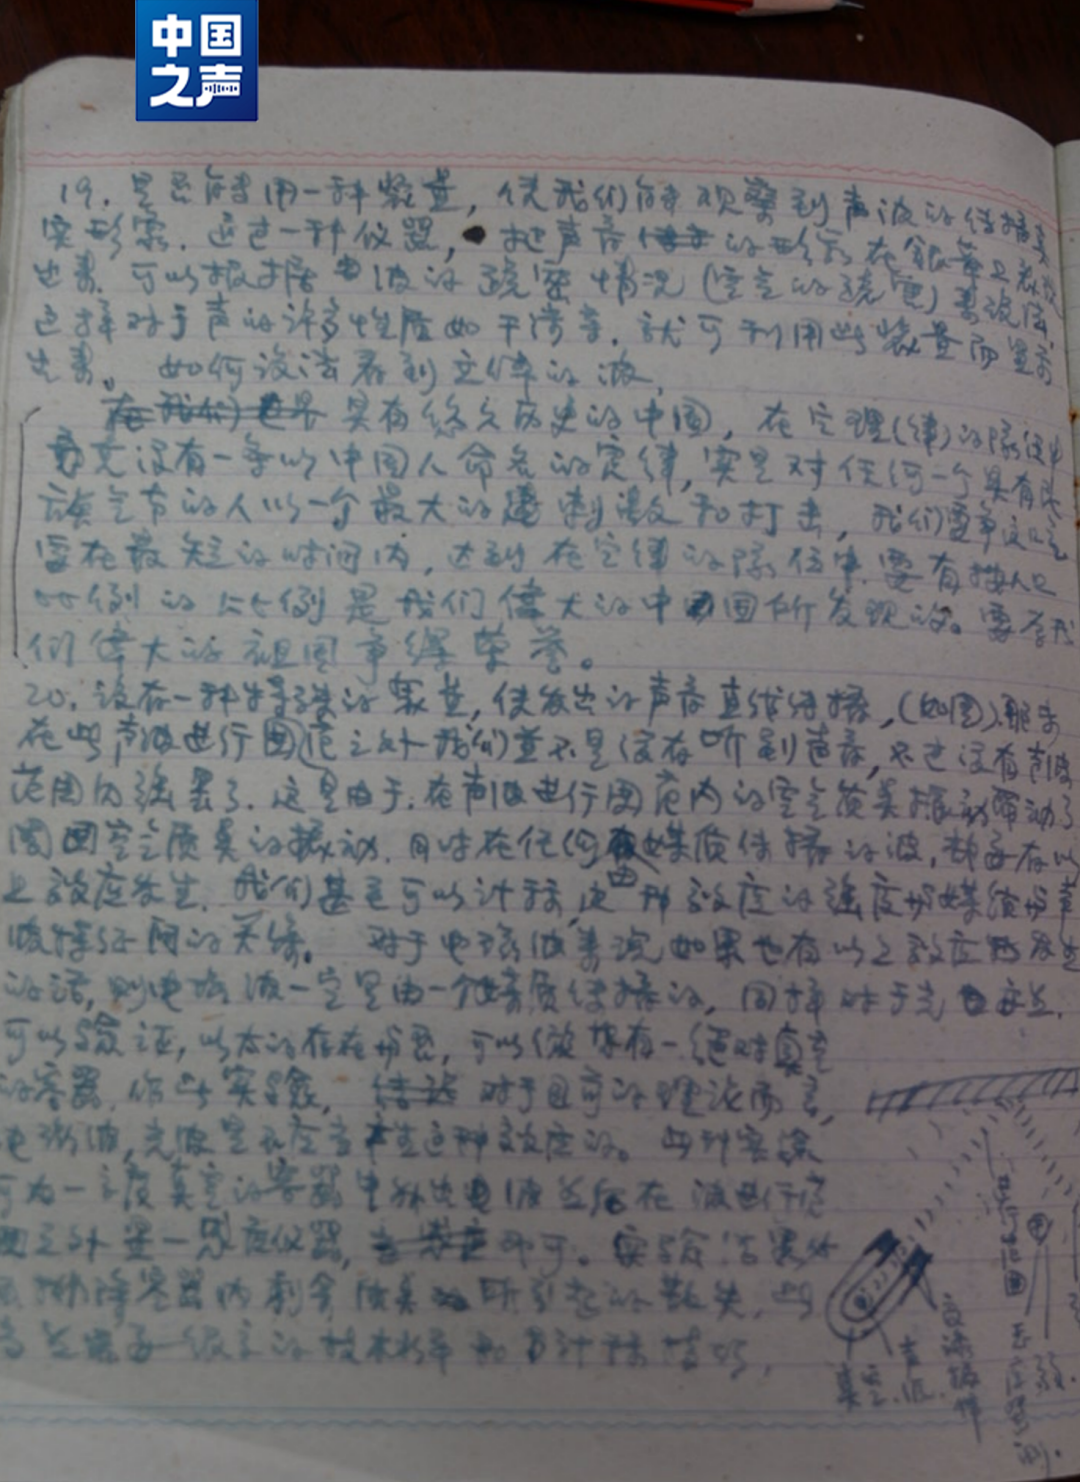 中国
之声
19. 是否能用一种装置，使我们能观察到声波的传播真
实形象. 通过一种仪器，把声音的形象在银幕上表现
出来. 可以根据声波的疏密情况(空气的疏密)来设定
这样对于声的许多性质如干涉等. 就可利用此装置而显示
出来。 如何设法看到立体的波.
在我们世界具有悠久历史的中国，在定理(律)的队伍中
竟没有一条以中国人命名的定律，实是对任何一个具有民
族气节的人以一个最大的刺激和打击，我们要争这口气
要在最短的时间内，达到在定律的队伍中，要有按人口
比例的比例是我们伟大的中国所发现的。要为我
们伟大的祖国争得荣誉。
20. 设有一种特殊的装置，使发出的声音直线传播，(如图).那末
在此声波进行范围之外我们并不是没有听到声音，不过没有声波
范围内强罢了. 这是由于，在声波进行范围内的空气质点振动带动了
周围空气质点的振动. 同时在任何由媒质传播的波，都要有以
上效应发生. 我们甚至可以计算，这种效应的强度与媒质与声
波特征间的关系。 对于电磁波来说如果也有以上效应所发生
的话，则电磁波一定是由一个媒质传播的，同样对于光也亦然.
可以验证，以太的存在与否，可以做成有一绝对真空
的容器. 作此实验， 对于目前的理论而言，
电磁波，光波是不应当产生这种效应的。此种实验
可为一高度真空的容器中 电波然后在波进行范
围之外置一 仪器， 即可。实验结果外
排除容器内剩余质点所引起的散失. 此
当然需要一很高的技术水平和 计算技巧.
进行范围
真空.
声源.